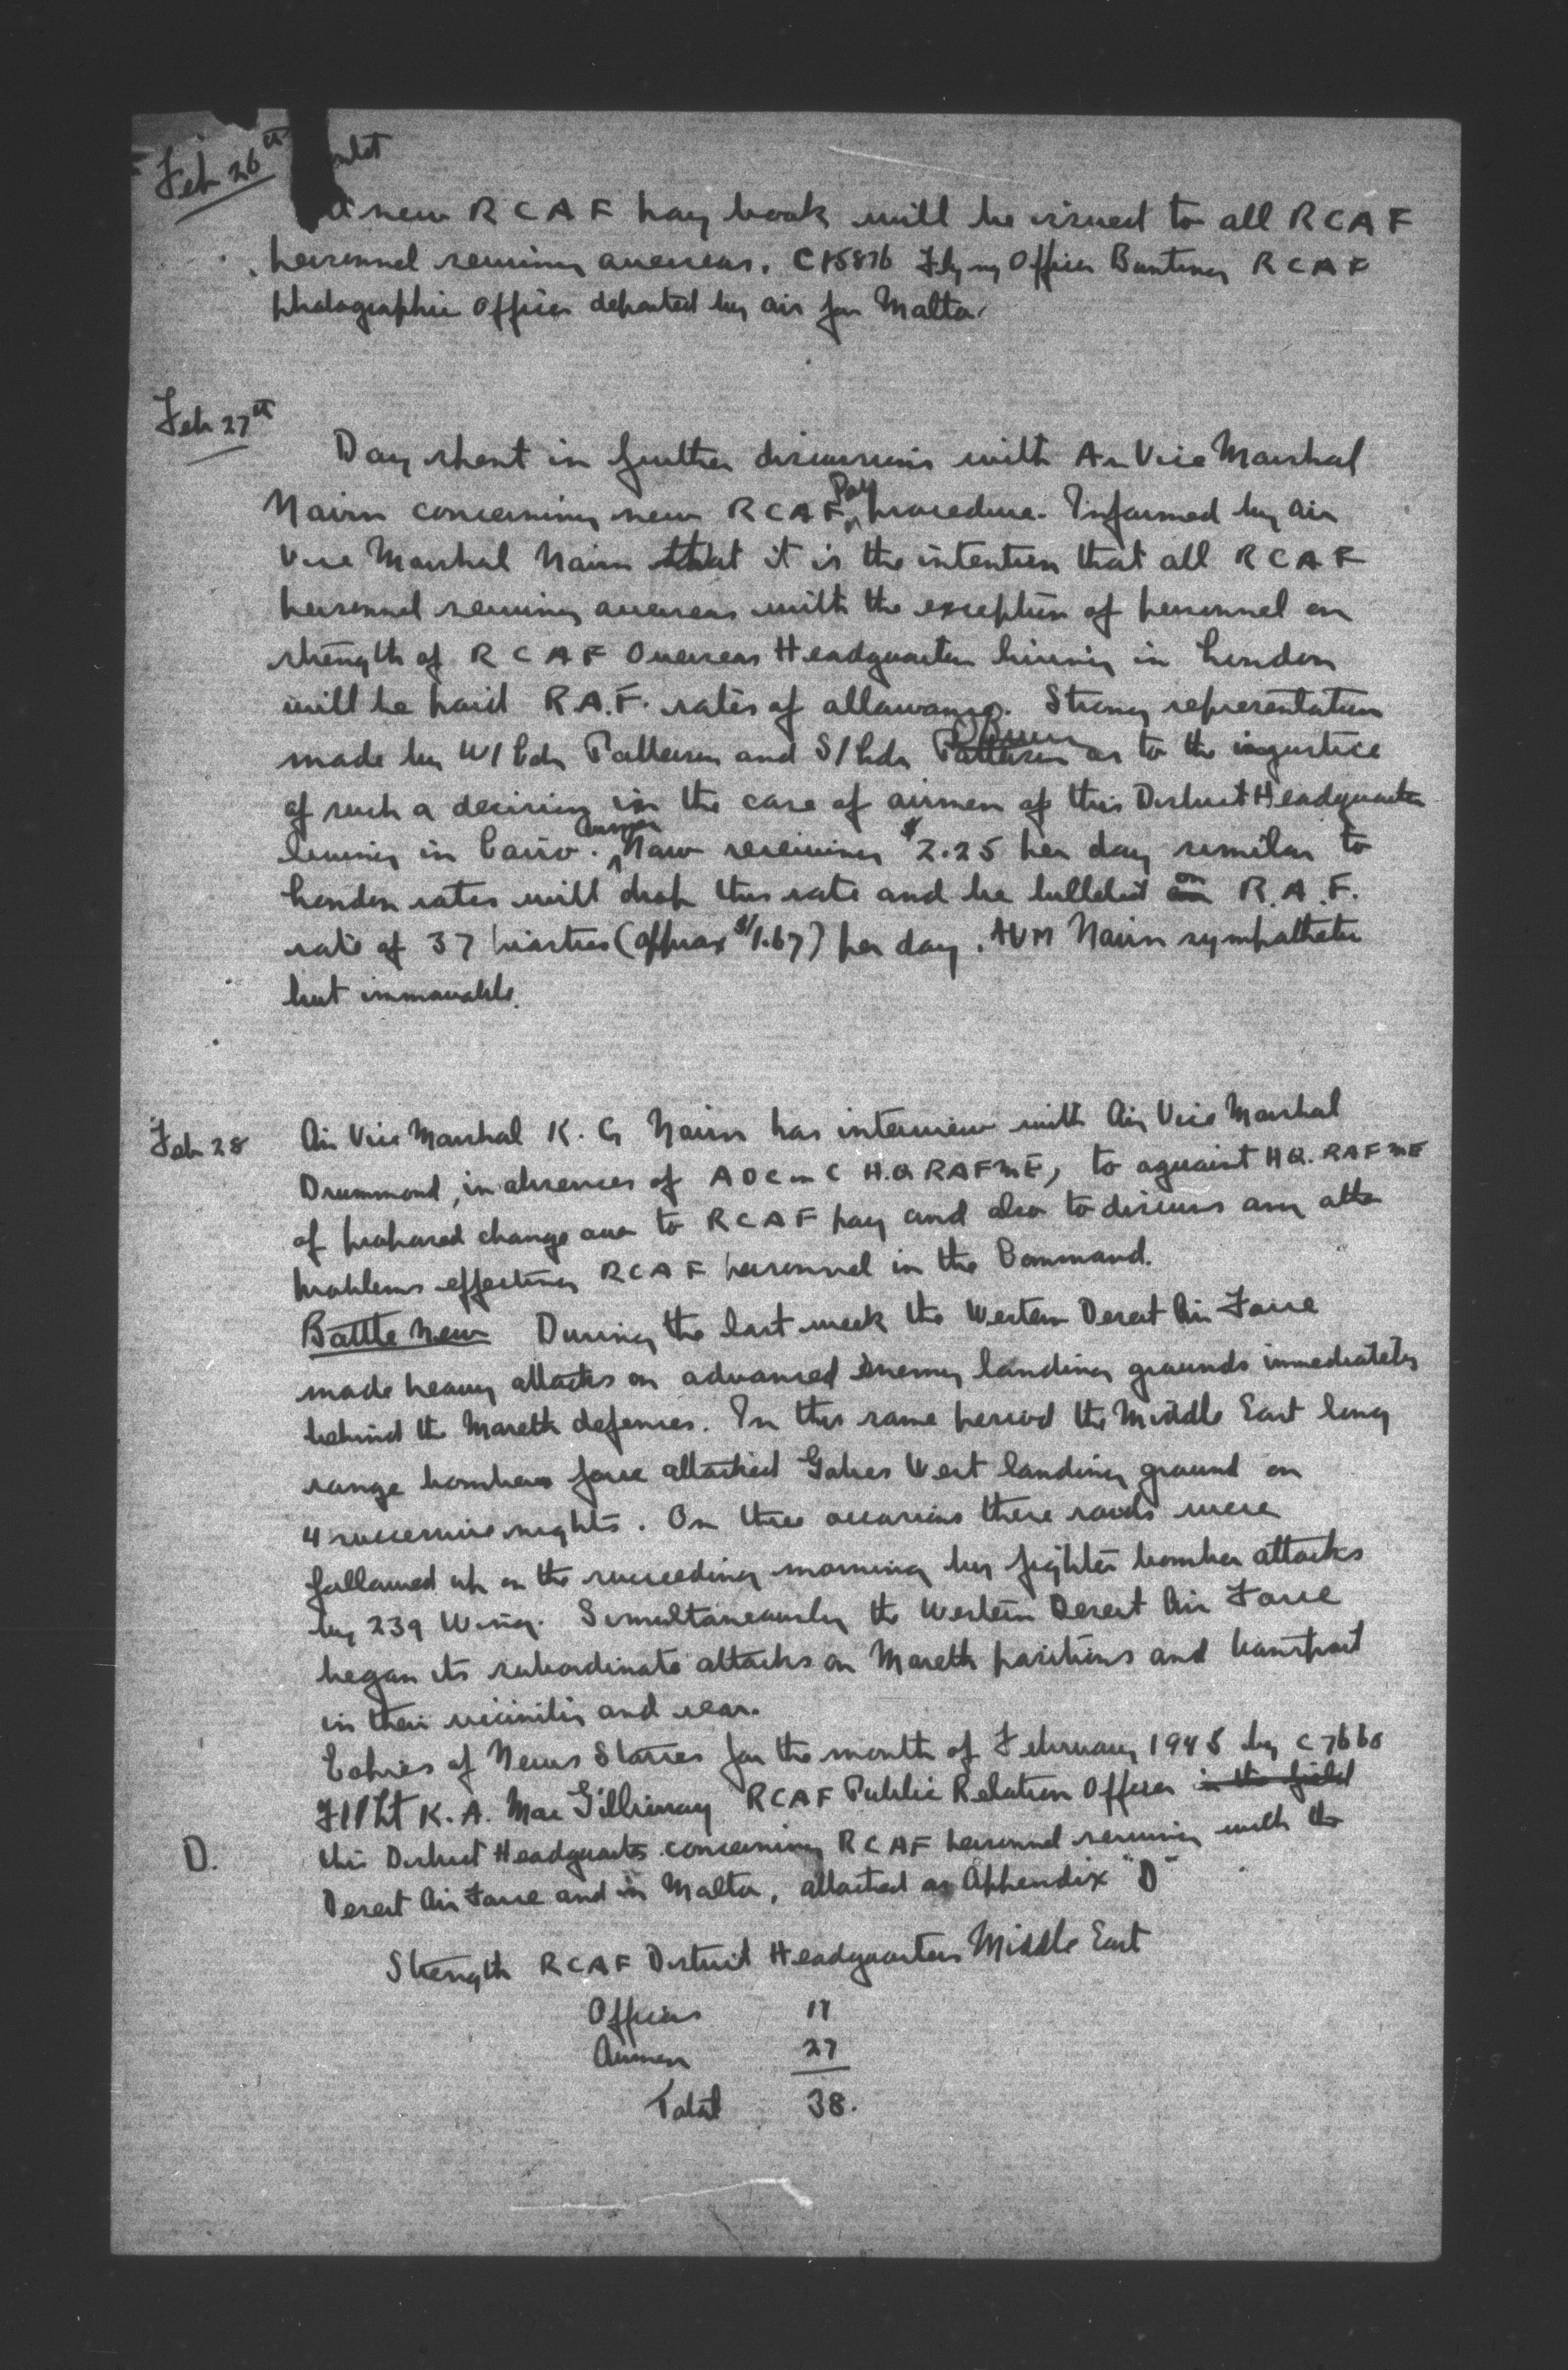 Feb 26th
A new RCAF pay book will be issued to all RCAF
personnel serving overseas. C15876 Flying Officer Bunting RCAF
photographic officer departed by air for Malta.
Feb 27th
Day spent in further discussions with Air Vice Marshal
Nairn concerning new RCAF Pay procedure. Informed by Air
Vice Marshal Nairn that it is the intention that all RCAF
personnel serving overseas with the exception of personnel on
strength of RCAF Overseas Headquarters living in London
will be paid R.A.F. rates of allowance. Strong representation
made by W/Cdr Patterson and S/Ldr as to the injustice
of such a decision in the case of airmen of this District Headquarters
living in Cairo. Airmen Now receiving $2.25 per day similar to
London rates will drop this rate and be billeted on R.A.F.
rate of 37 piastres (approx $1.67) per day. AVM Nairn sympathetic
but immovable.
Feb 28
Air Vice Marshal K. G Nairn has interview with Air Vice Marshal
Drummond, in absence of AOC in C H.Q RAFME, to aquaint HQ. RAFME
of proposed change over to RCAF pay and also to discuss any other
problems effecting RCAF personnel in the Command.
Battle News During the last week the Western Desert Air Force
made heavy attacks on advanced enemy landing grounds immediately
behind the Mareth defenses. In this same period the Middle East long
range bomber force attacked Gabes West landing ground on
4 successive nights. On three occasions these raids were
followed up on the succeeding morning by fighter bomber attacks
by 239 Wing. Simultaneously the Western Desert Air Force
began its subordinate attacks on Mareth positions and transport
in their vicinities and rear.
Copies of News Stories for the month of February 1943 by C7660
F/Lt K. A. MacGillivray RCAF Public Relation Officer in the field
D. this District Headquarters concerning RCAF personnel serving with the
Desert Air Force and in Malta, attached as Appendix "D"
Strength RCAF District Headquarters Middle East
Officers 11
Airmen 27
Total 38.